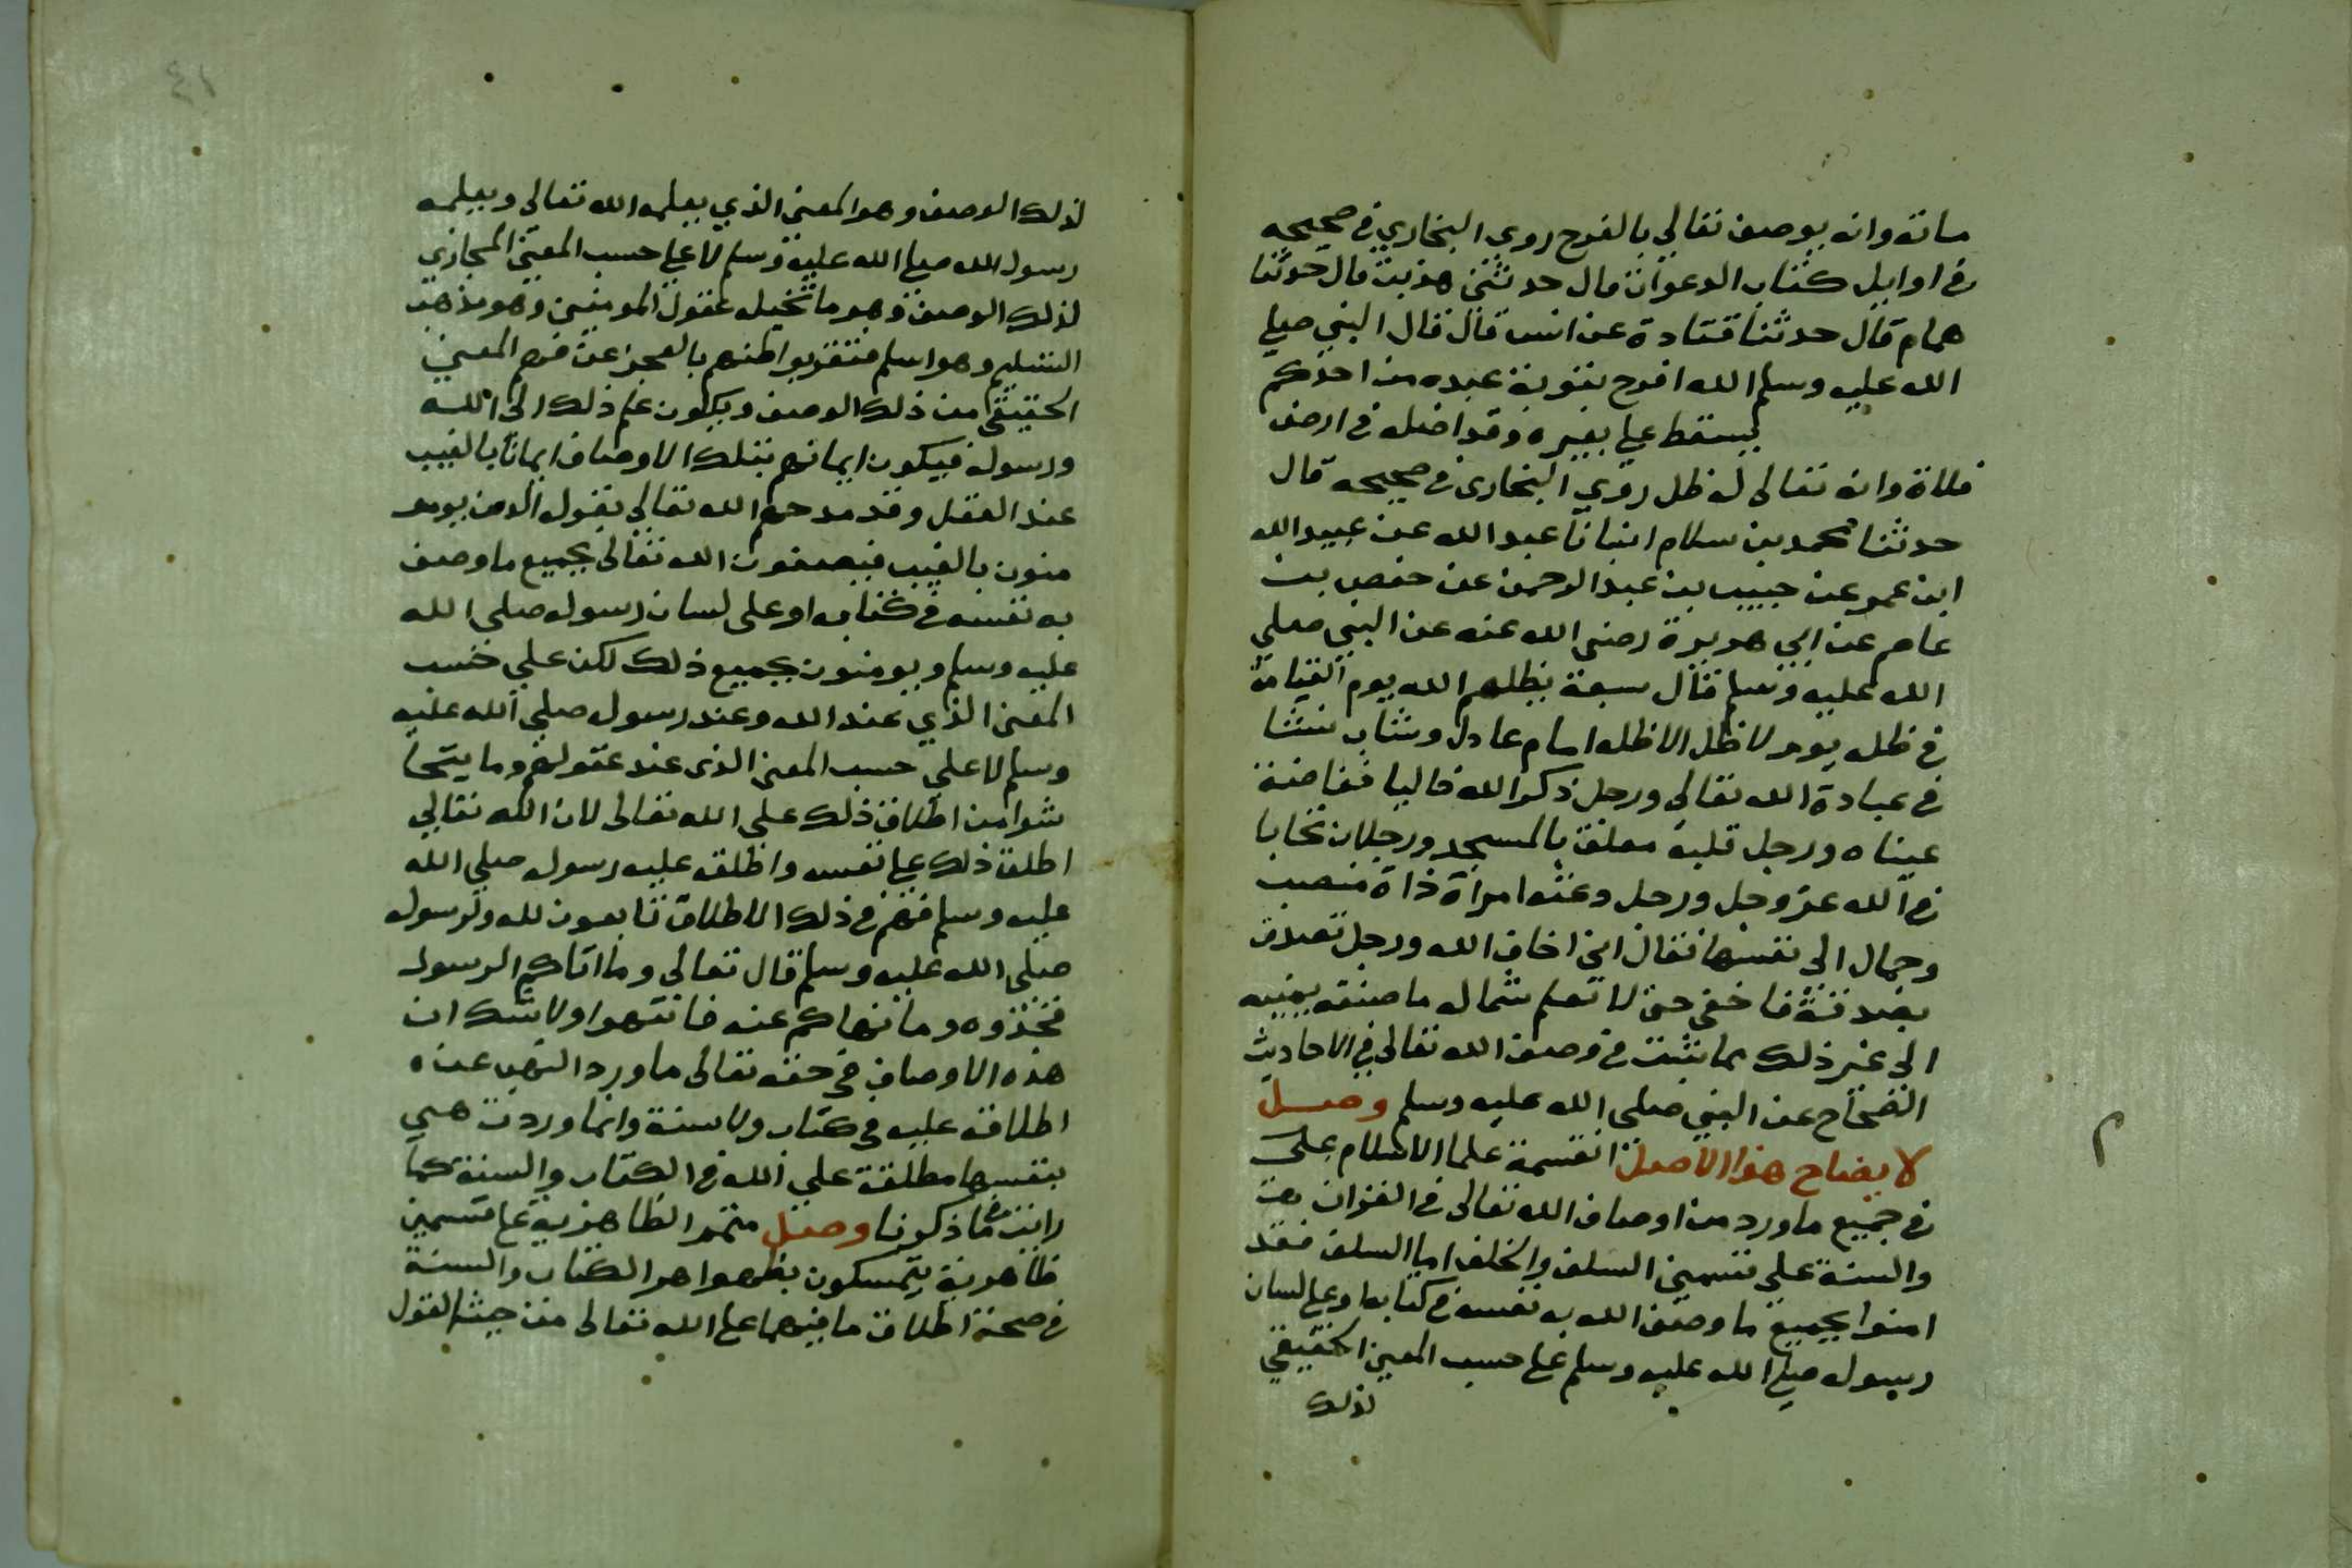 ساتة وانه يوصف تعالى بالفرح روي البخاري في صحيحه
في اوايل كتاب الدعوات قال حدثني هدبة قال حدثنا
همام قال حدثنا قتادة عن انس قال قال النبي صلى
الله عليه وسلم الله افرح بتوبة عبده من احدكم
يسقط على بعيره وقد اضله في ارض
فلاة وانه تعالى له ظل روي البخارى في صحيحه قال
حدثنا محمد بن سلام انبانا عبد الله عن عبيد الله
ابن عمر عن حبيب بن عبد الرحمن عن حفص بن
عاصم عن ابي هريرة رضى الله عنه عن النبي صلي
الله عليه وسلم قال سبعة يظلهم الله يوم القيامة
في ظله يوم لا ظل الا ظله امام عادل وشاب نشا
في عبادة الله تعالى ورجل ذكر الله خاليا ففاضت
عيناه ورجل قلبه معلق بالمسجد ورجلان تحابا
في الله عز وجل ورجل دعته امراة ذاة منصب
وجمال الى نفسها فقال اني اخاف الله ورجل تصدق
بصدقة فاخفى حتى لا تعلم شماله ما صنعه يمينه
الى غير ذلك مما ثبت في وصف الله تعالى في الاحاديث
الصحاح عن النبي صلى الله عليه وسلم وصل
لايضاح هذا الاصل انقسمة علما الاسلام على
في جميع ما ورد من اوصاف الله تعالى في القران
والسنة على قسمين السلف والخلف اما السلف فقد
امنوا بجميع ما وصف الله به نفسه في كتابه او على لسان
رسوله صلى الله عليه وسلم على حسب المعنى الحقيقي
لذلك
٤١
لذلك الوصف وهو المعنى الذي يعلمه الله تعالى ويعلمه
رسول الله صلى الله عليه وسلم لا على حسب المعنى المجازي
لذلك الوصف وهو ما تخيله عقول المومنين وهو مذهب
التسليم وهو اسلم فتقر بواطنهم بالعجز عن فهم المعنى
الحقيقى من ذلك الوصف ويكلون علم ذلك الى الله
ورسوله فيكون ايمانهم بتلك الاوصاف ايمانا بالغيب
عند العقل وقد مدحهم الله تعالى بقوله الذين يومـ
منون بالغيب فيصفون الله تعالى بجميع ما وصف
به نفسه في كتابه او على لسان رسوله صلى الله
عليه وسلم ويومنون بجميع ذلك لكن علي حسب
المعنى الذي عند الله وعند رسوله صلي الله عليه
وسلم لا علي حسب المعنى الذى عند عقولهم وما يتحا
شوا من اطلاق ذلك علي الله تعالى لان الله تعالى
اطلق ذلك على نفسه واطلقه عليه رسوله صلي الله
عليه وسلم فهم في ذلك الاطلاق تابعون لله ولرسوله
صلى الله عليه وسلم قال تعالى وما اتاكم الرسول
فخذوه وما نهاكم عنه فانتهوا ولا شك ان
هذه الاوصاف في حقه تعالى ما ورد النهى عن
اطلاقه عليه في كتاب ولا سنة وانما وردت هي
بنفسها مطلقة علي الله في الكتاب والسنة كما
رايت مما ذكرنا وصل متى الظاهرية على قسمين
ظاهرية يتمسكون بظواهر الكتاب والسنة
في صحة اطلاق ما فيهما على الله تعالى من حيث القول